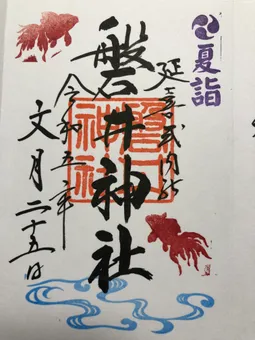 夏詣
延喜式内社
磐井神社
令和五年
文月二十五日
磐井神社